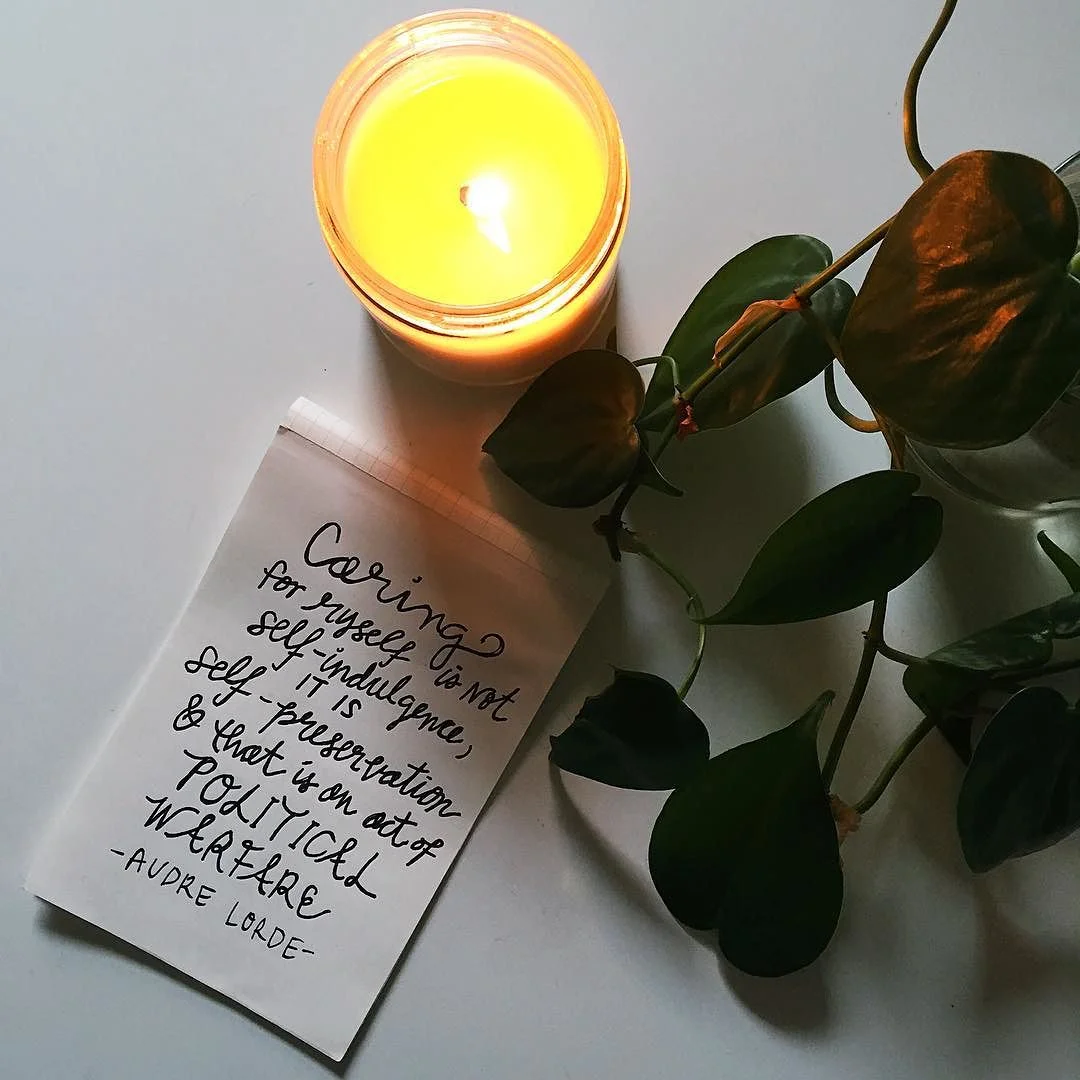 Caring
for myself is not
self-indulgence,
IT IS
self-preservation
& that is an act of
POLITICAL
WARFARE
-AUDRE LORDE-